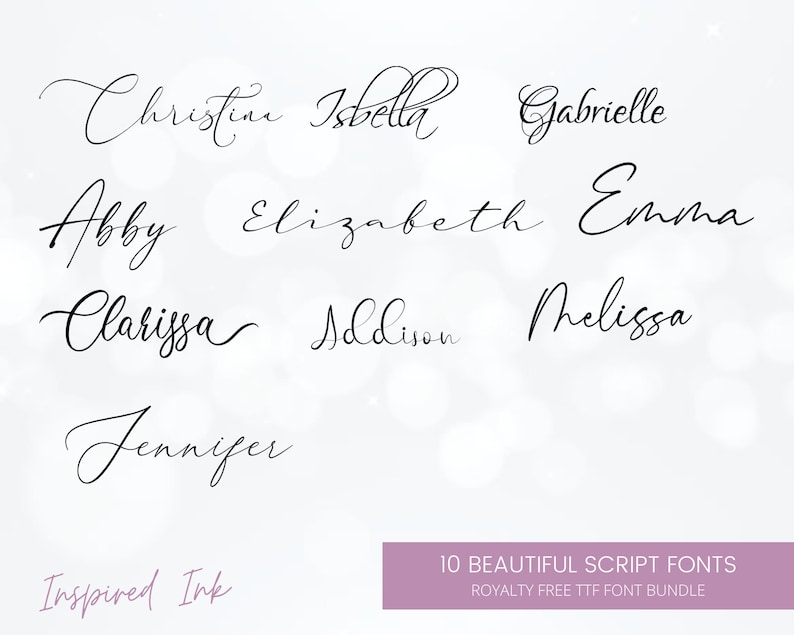 Christina Isbella Gabrielle
Abby Elizabeth Emma
Clarissa Addison Melissa
Jennifer
Inspired Ink
10 BEAUTIFUL SCRIPT FONTS
ROYALTY FREE TTF FONT BUNDLE